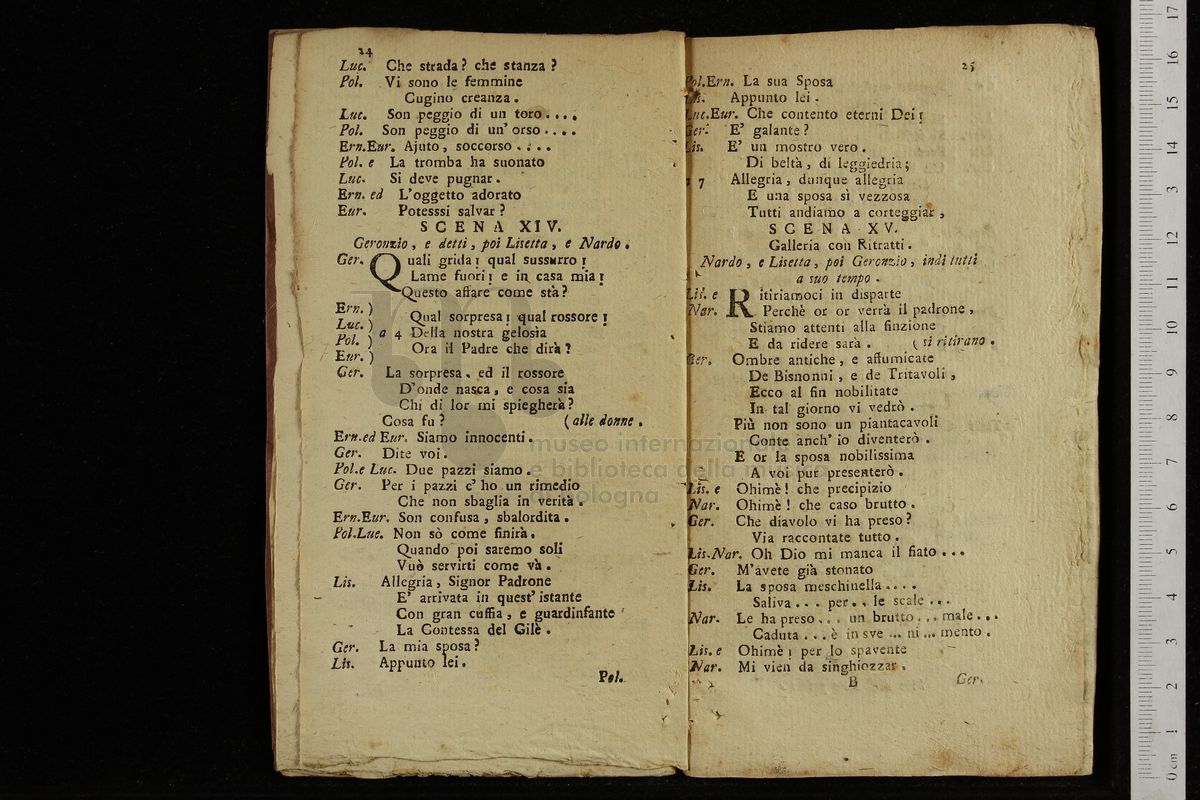 24
Luc. Che strada? che stanza?
Pol. Vi sono le femmine
Cugino creanza.
Luc. Son peggio di un toro....
Pol. Son peggio di un' orso....
Ern.Eur. Ajuto, soccorso....
Pol. e La tromba ha suonato
Luc. Si deve pugnar.
Ern. ed L'oggetto adorato
Eur. Potesssi salvar?
SCENA XIV.
Geronzio, e detti, poi Lisetta, e Nardo.
Ger. Quali grida! qual sussurro!
Lame fuori! e in casa mia!
Questo affare come stà?
Ern.)
Luc.) Qual sorpresa! qual rossore!
Pol. ) a 4 Della nostra gelosìa
Eur.) Ora il Padre che dirà?
Ger. La sorpresa, ed il rossore
D'onde nasca, e cosa sia
Chi di lor mi spiegherà?
Cosa fu? (alle donne.
Ern.ed Eur. Siamo innocenti.
Ger. Dite voi.
Pol.e Luc. Due pazzi siamo.
Ger. Per i pazzi c' ho un rimedio
Che non sbaglia in verità.
Ern.Eur. Son confusa, sbalordita.
Pol.Luc. Non sò come finirà.
Quando poi saremo soli
Vuò servirti come và.
Lis. Allegria, Signor Padrone
E' arrivata in quest' istante
Con gran cuffia, e guardinfante
La Contessa del Gilè.
Ger. La mia sposa?
Lis. Appunto lei.
Pol.
25
Pol.Ern. La sua Sposa
Lis. Appunto lei.
Luc.Eur. Che contento eterni Dei!
Ger. E' galante?
Lis. E' un mostro vero.
Di beltà, di leggiedria;
a 7 Allegria, dunque allegria
E una sposa sì vezzosa
Tutti andiamo a corteggiar,
SCENA XV.
Galleria con Ritratti.
Nardo, e Lisetta, poi Geronzio, indi tutti
a suo tempo.
Lis. e Ritiriamoci in disparte
Nar. Perchè or or verrà il padrone,
Stiamo attenti alla finzione
E da ridere sarà. (si ritirano.
Ger. Ombre antiche, e affumicate
De Bisnonni, e de Tritavoli,
Ecco al fin nobilitate
In tal giorno vi vedrò.
Più non sono un piantacavoli
Conte anch' io diventerò.
E or la sposa nobilissima
A voi pur presenterò.
Lis. e Ohimè! che precipizio
Nar. Ohimè! che caso brutto.
Ger. Che diavolo vi ha preso?
Via raccontate tutto.
Lis.Nar. Oh Dio mi manca il fiato...
Ger. M'avete già stonato
Lis. La sposa meschinella....
Saliva... per.. le scale...
Nar. Le ha preso... un brutto... male...
Caduta... è in sve ... ni ... mento.
Lis. e Ohimè! per lo spavente
Nar. Mi vien da singhiozzar.
B
Ger.
museo internazion
e biblioteca della musica
di bologna